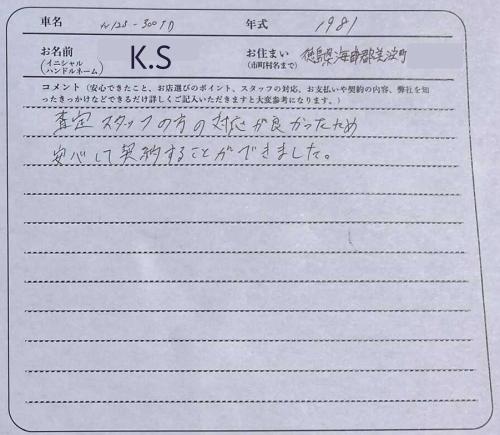 車名 W123-300TD 年式 1981
お名前 (イニシャル ハンドルネーム) K.S お住まい (市町村名まで) 徳島県海部郡美波町
コメント(安心できたこと、お店選びのポイント、スタッフの対応、お支払いや契約の内容、弊社を知
ったきっかけなどできるだけ詳しくご記入いただきますと大変参考になります。)
査定スタッフの方の対応が良かったため
安心して契約することができました。